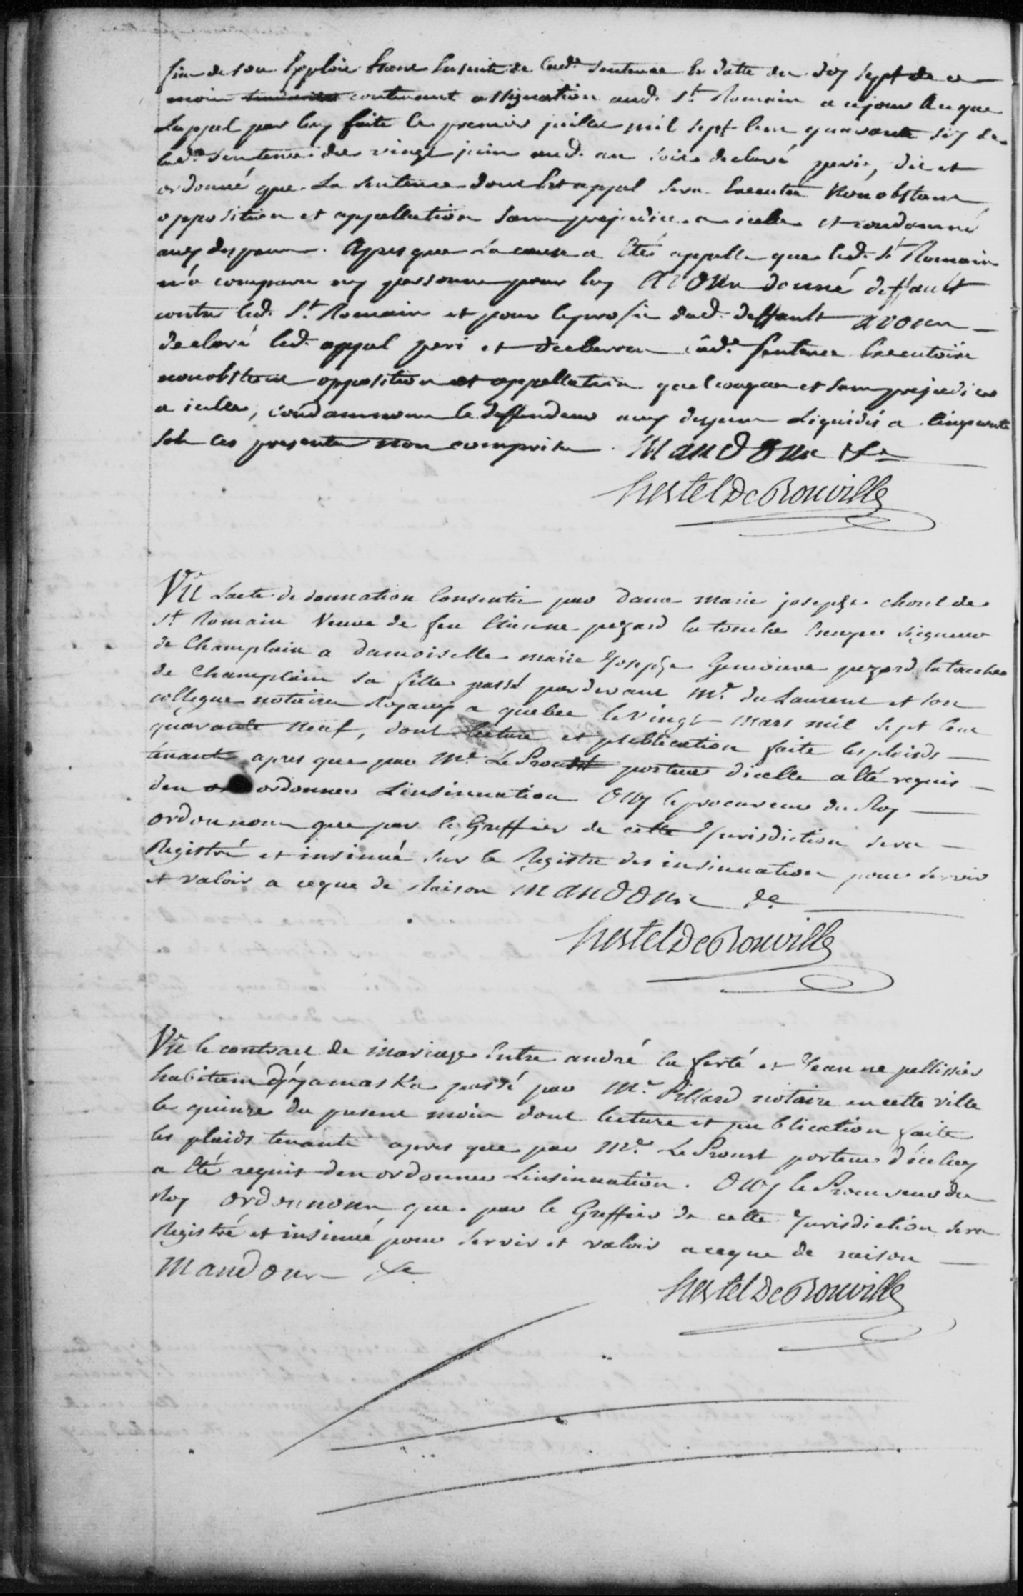 fin de son Exploit Etant Ensuite de lad.e Sentence En datte du dix Sept de ce
mois contenant assignation aud. St. Romain a cejour ace que
Lappel par luy faite le premier juillet mil sept Cent quarante six de
lad.e Sentence du vingt juin aud. an soit declaré peri, dit et
ordonné que La Sentence dont Est appel Sera Executée Nonobstant
opposition et appellation sans prejudice a icelle et condamné
aux depens. Apres que La cause a Eté appellée que led. St Romain
n'a comparu ny personne pour luy Avons donné deffault
contre led. St. Romain et pour le profit dud. deffault avons
declaré led. appel peri et declarons lad.e Sentence Executoire
nonobstant opposition et appellation quelconques et sans prejudice
a icelles, condamnons le deffendeur aux depens Liquidés a Cinquante
sols ces presentes non comprises. Mandons &a
hertel De Rouville
Vû Lacte de donnation Consentie par Dame marie josephe chorel de
St Romain Veuve de feu Etienne pezard la touche Ecuyer Seigneur
de Champlain a Damoiselle marie Josephe Genevieve pezard la touche
de Champlain sa fille passé pardevant Me. du Laurent et son
collegue notaires Royaux a quebec le vingt mars mil sept Cent
quarante neuf, dont lecture et publication faite les plaids
tenants apres que par Me. Le Proust porteur dicelle a Eté requis
den ordonner Linsinuation Ouy le procureur du Roy
ordonnons que par le Greffier de cette Jurisdiction sera
Registré et insinué sur le Registre des insinuations pour servir
et valoir a ceque de Raison Mandons &a
hertel De Rouville
Vû le contract de mariage Entre andré la ferté et Jeanne pellissier
habitans d'yamaska passé par Me. Pillard notaire en cette ville
le quinze du present mois dont lecture et publication faite
les plaids tenants apres que par Me. Le Proust porteur d'iceluy
a Eté requis den ordonner Linsinuation. Ouy le Procureur du
Roy ordonnons que par le Greffier de cette Jurisdiction sera
Registré et insinué pour servir et valoir aceque de raison
Mandons &a
hertel De Rouville